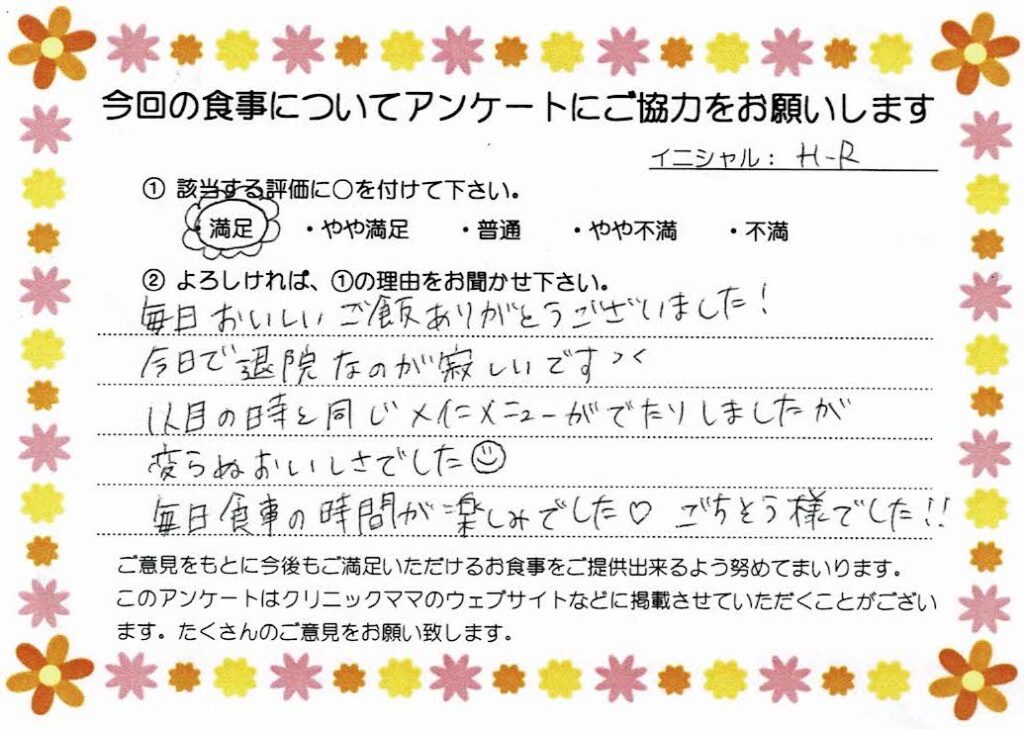 今回の食事についてアンケートにご協力をお願いします
イニシャル： H-R
① 該当する評価に○を付けて下さい。
・満足 ・やや満足 ・普通 ・やや不満 ・不満
② よろしければ、①の理由をお聞かせ下さい。
毎日おいしいご飯ありがとうございました！
今日で退院なのが寂しいです＞＜
1人目の時と同じメインメニューがでたりしましたが
変らぬおいしさでした☺
毎日食事の時間が楽しみでした♡ ごちそう様でした！！
ご意見をもとに今後もご満足いただけるお食事をご提供出来るよう努めてまいります。
このアンケートはクリニックママのウェブサイトなどに掲載させていただくことがござい
ます。たくさんのご意見をお願い致します。